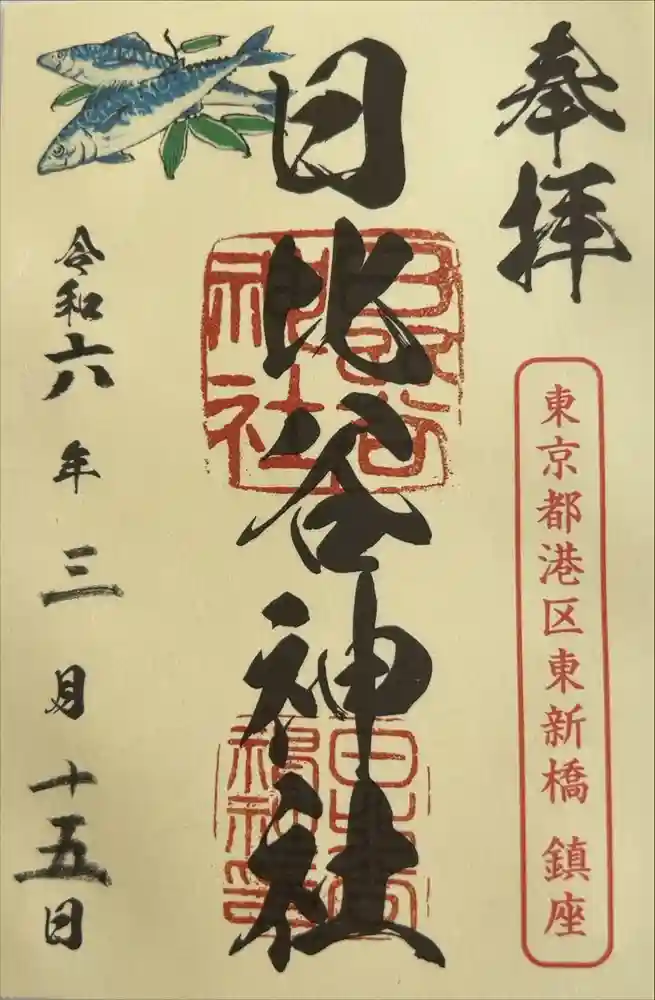 奉拝
東京都港区東新橋 鎮座
日比谷神社
令和六年三月十五日